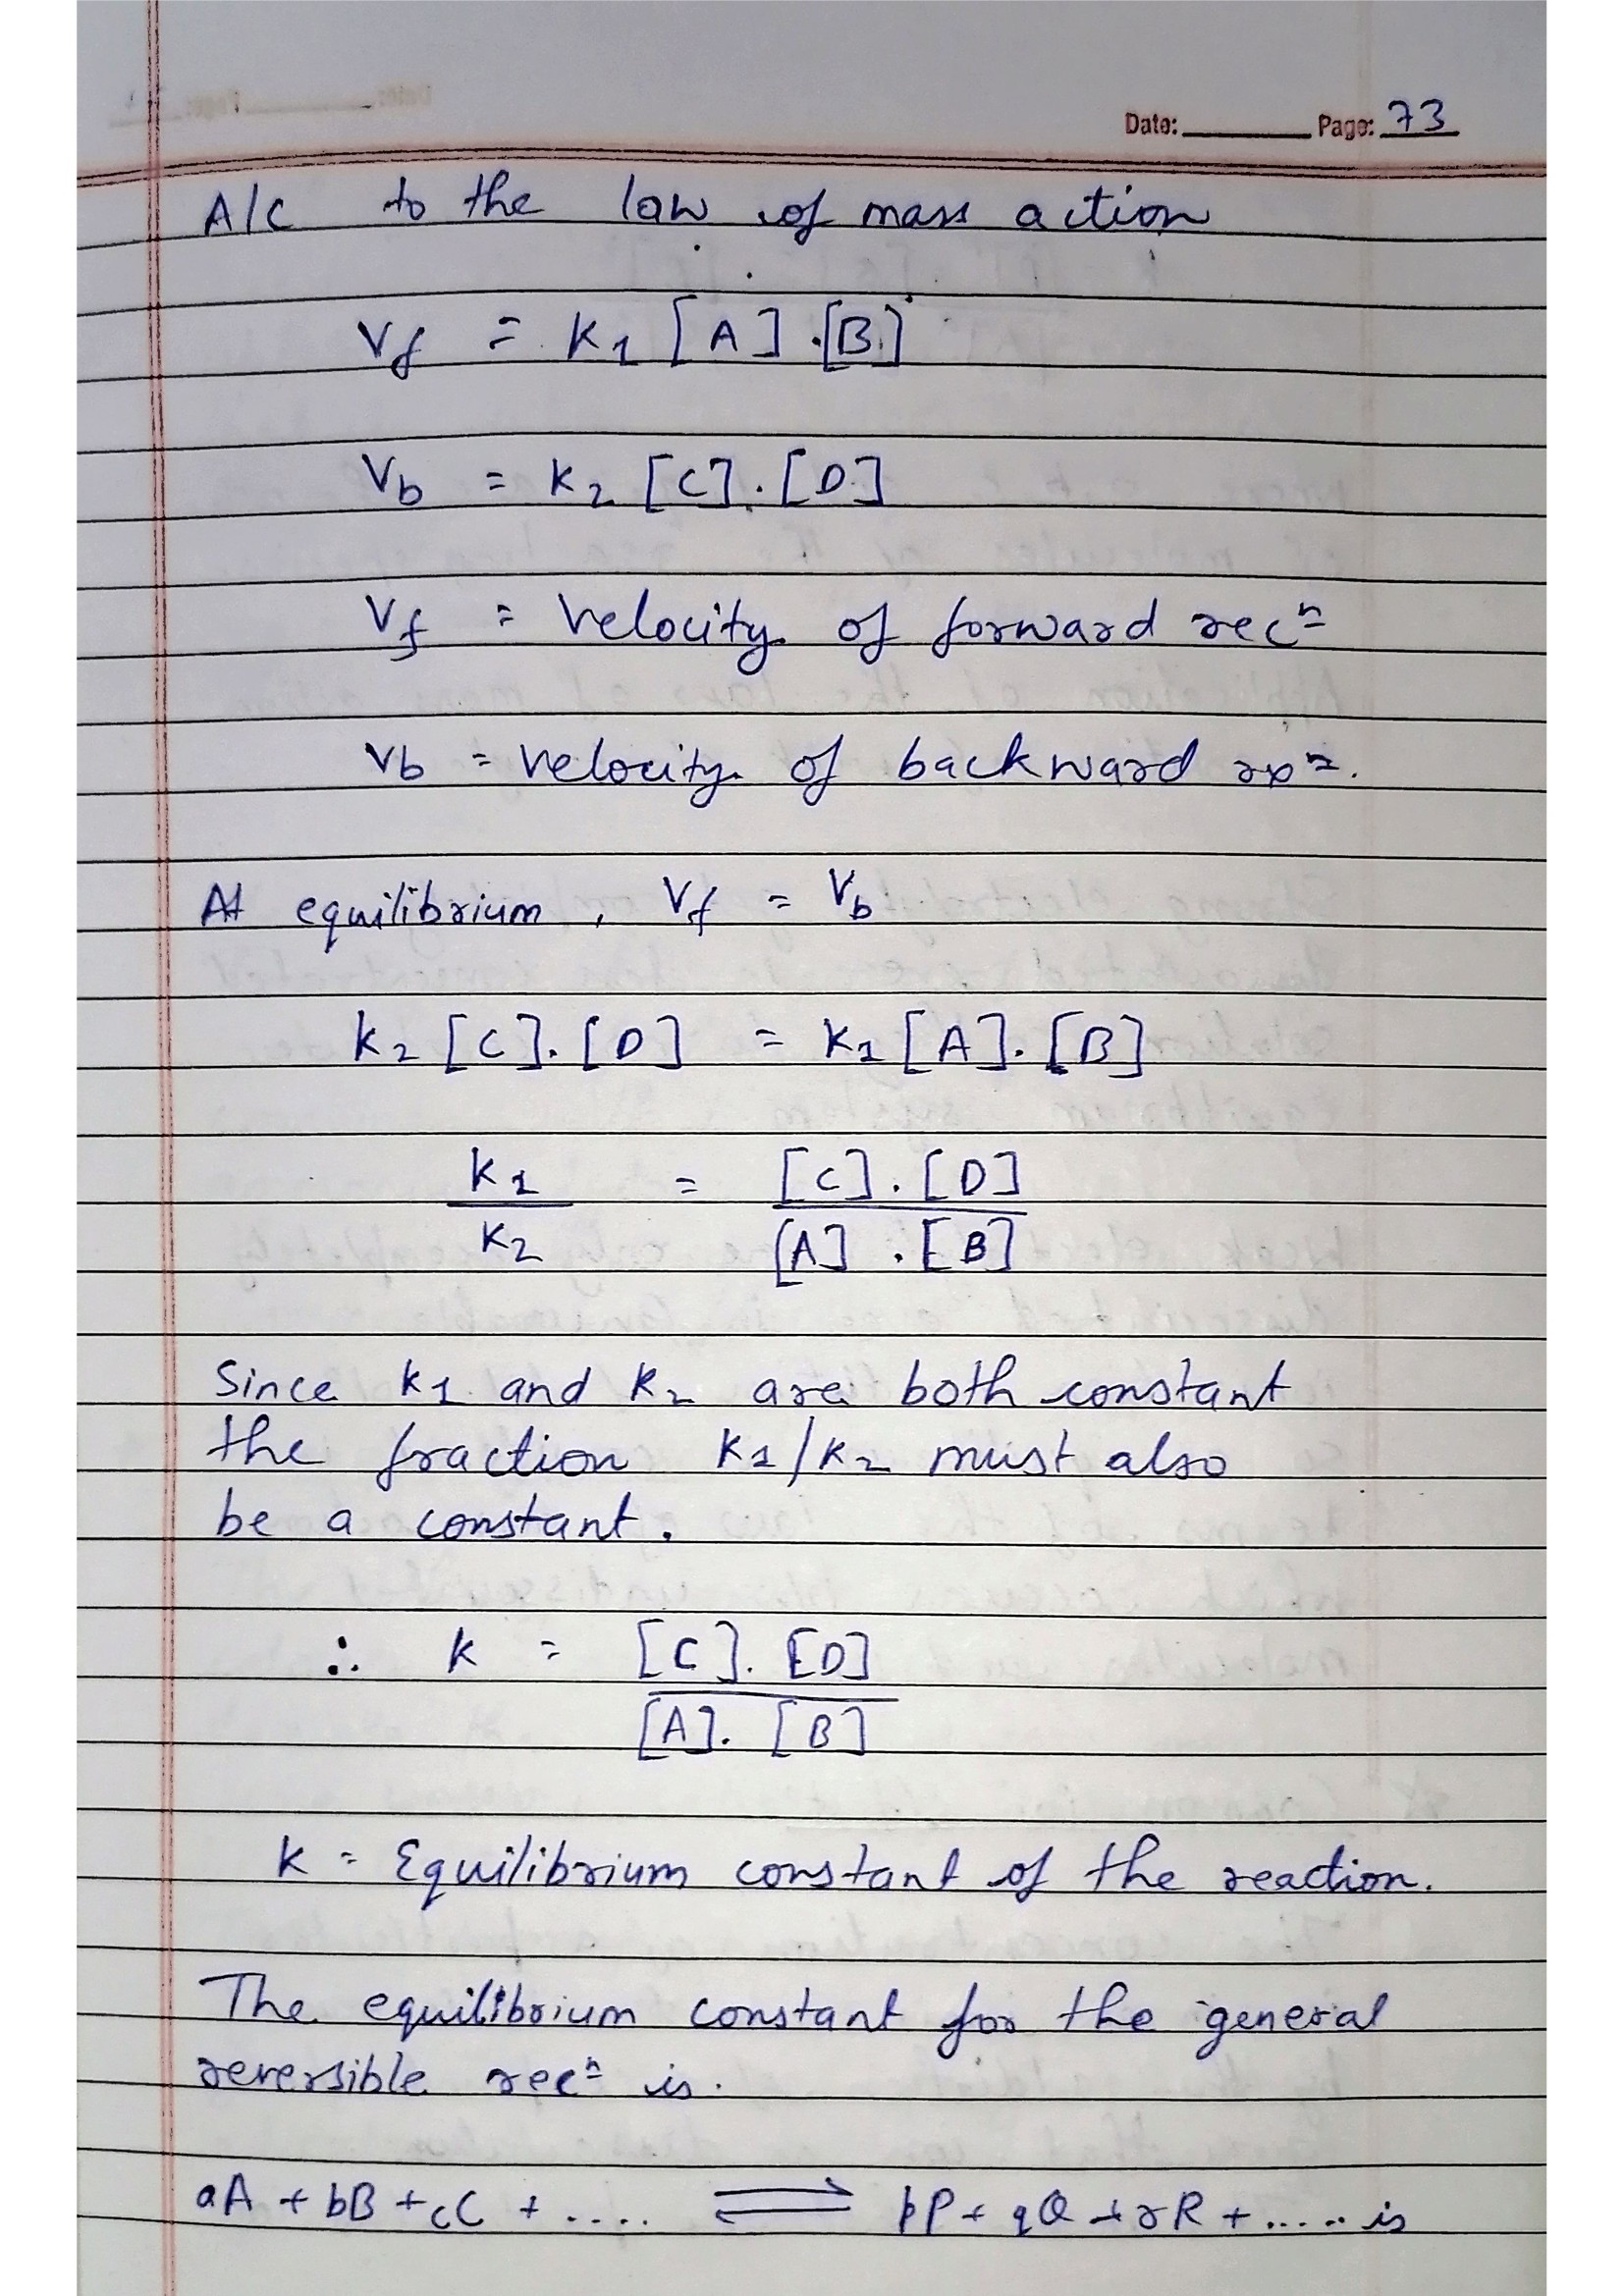 Date: Page: 73
A/c to the law of mass action
Vf = K1 [A].[B]
Vb = K2 [C].[D]
Vf = Velocity of forward recⁿ
Vb = Velocity of backward rxⁿ.
At equilibrium, Vf = Vb
K2 [C].[D] = K1 [A].[B]
K1 = [C].[D]
K2 [A].[B]
Since K1 and K2 are both constant
the fraction K1/K2 must also
be a constant.
∴ K = [C].[D]
[A].[B]
K = Equilibrium constant of the reaction.
The equilibrium constant for the general
reversible recⁿ is.
aA + bB + cC + .... ⇌ pP + qQ + rR + ..... is